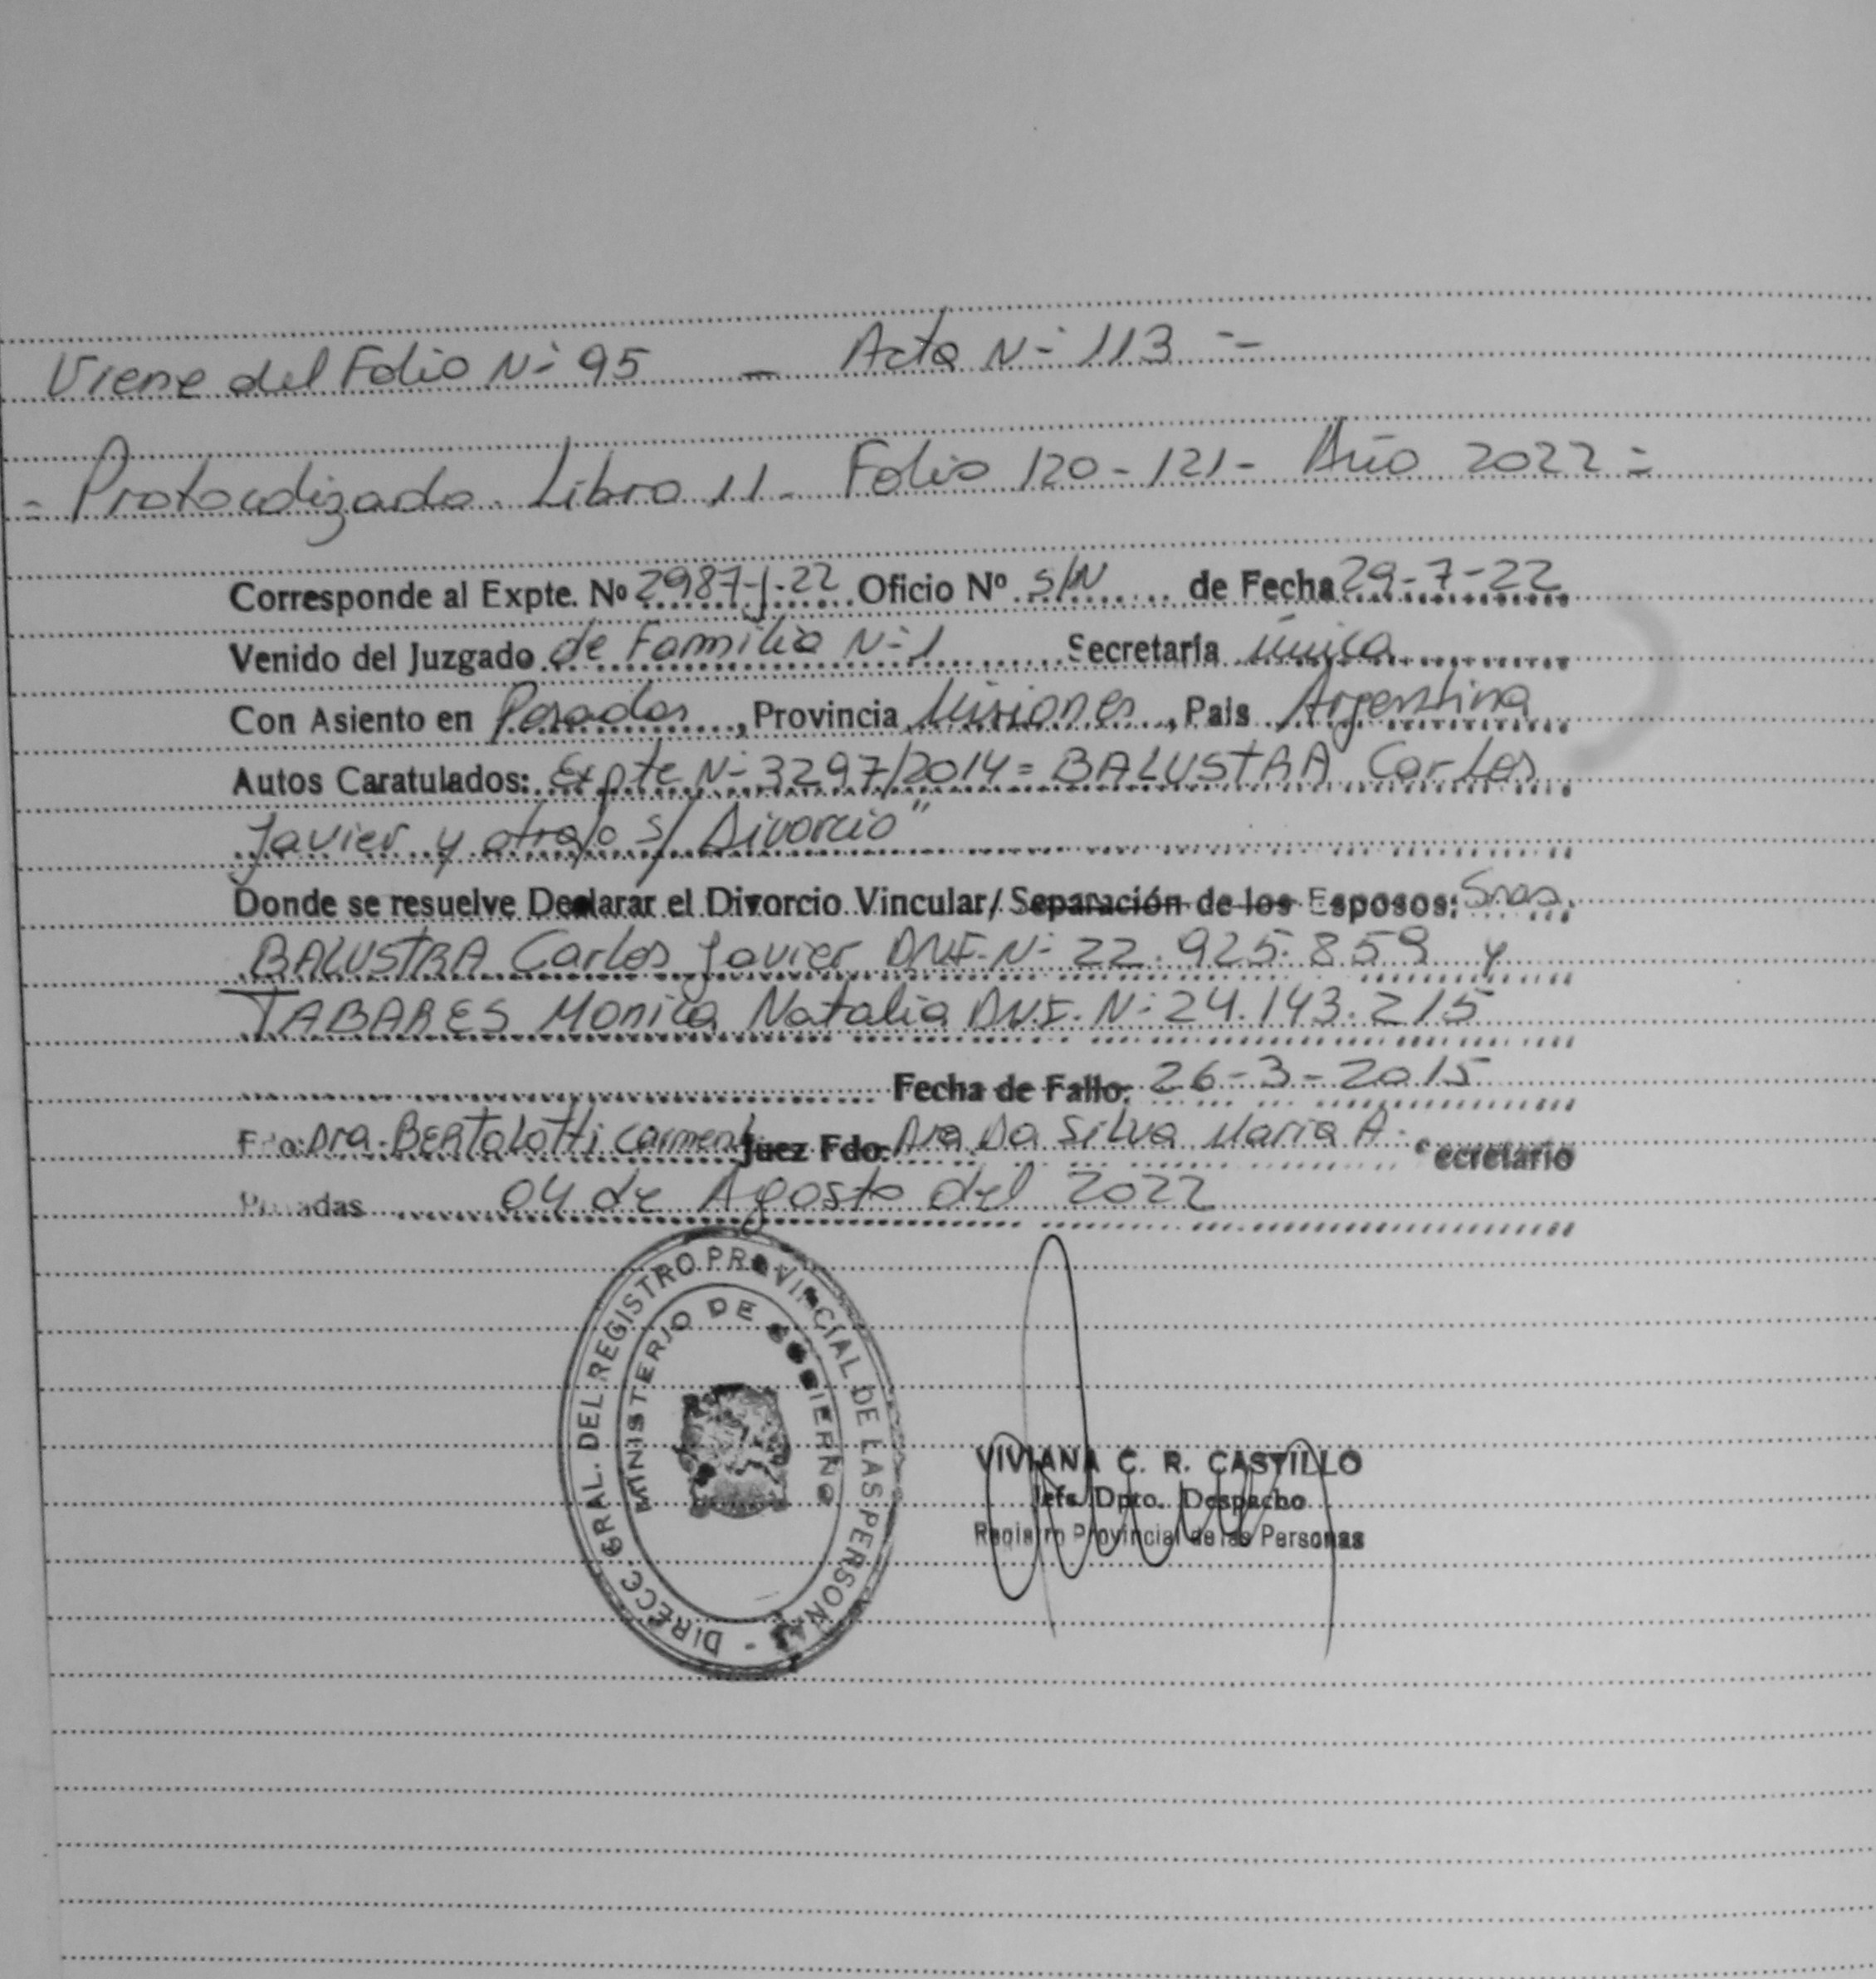 Viene del Folio Nº 95 — Acta Nº 113 =
= Protocolizado. Libro 11. Folio 120-121- Año 2022 =
Corresponde al Expte. Nº 2987-J-22 Oficio Nº S/N de Fecha 29-7-22
Venido del Juzgado de Familia Nº 1 Secretaría única
Con Asiento en Posadas, Provincia Misiones, País Argentina
Autos Caratulados: Expte Nº 3297/2014= BALUSTRA Carlos
Javier y otra/o s/ Divorcio"
Donde se resuelve Declarar el Divorcio Vincular/ Separación de los Esposos: Sres.
BALUSTRA Carlos Javier DNI. Nº 22.925.859 y
TABARES Monica Natalia DNI. Nº 24.143.215
Fecha de Fallo: 26-3-2015
Fdo: Dra. BERTOLOTTI Carmen Juez Fdo: Dra Da Silva Maria A. Secretario
Posadas 04 de Agosto del 2022
DIRECC. GRAL. DEL REGISTRO PROVINCIAL DE LAS PERSONAS -
MINISTERIO DE GOBIERNO
VIVIANA C. R. CASTILLO
Jefe Dpto. Despacho
Registro Provincial de las Personas